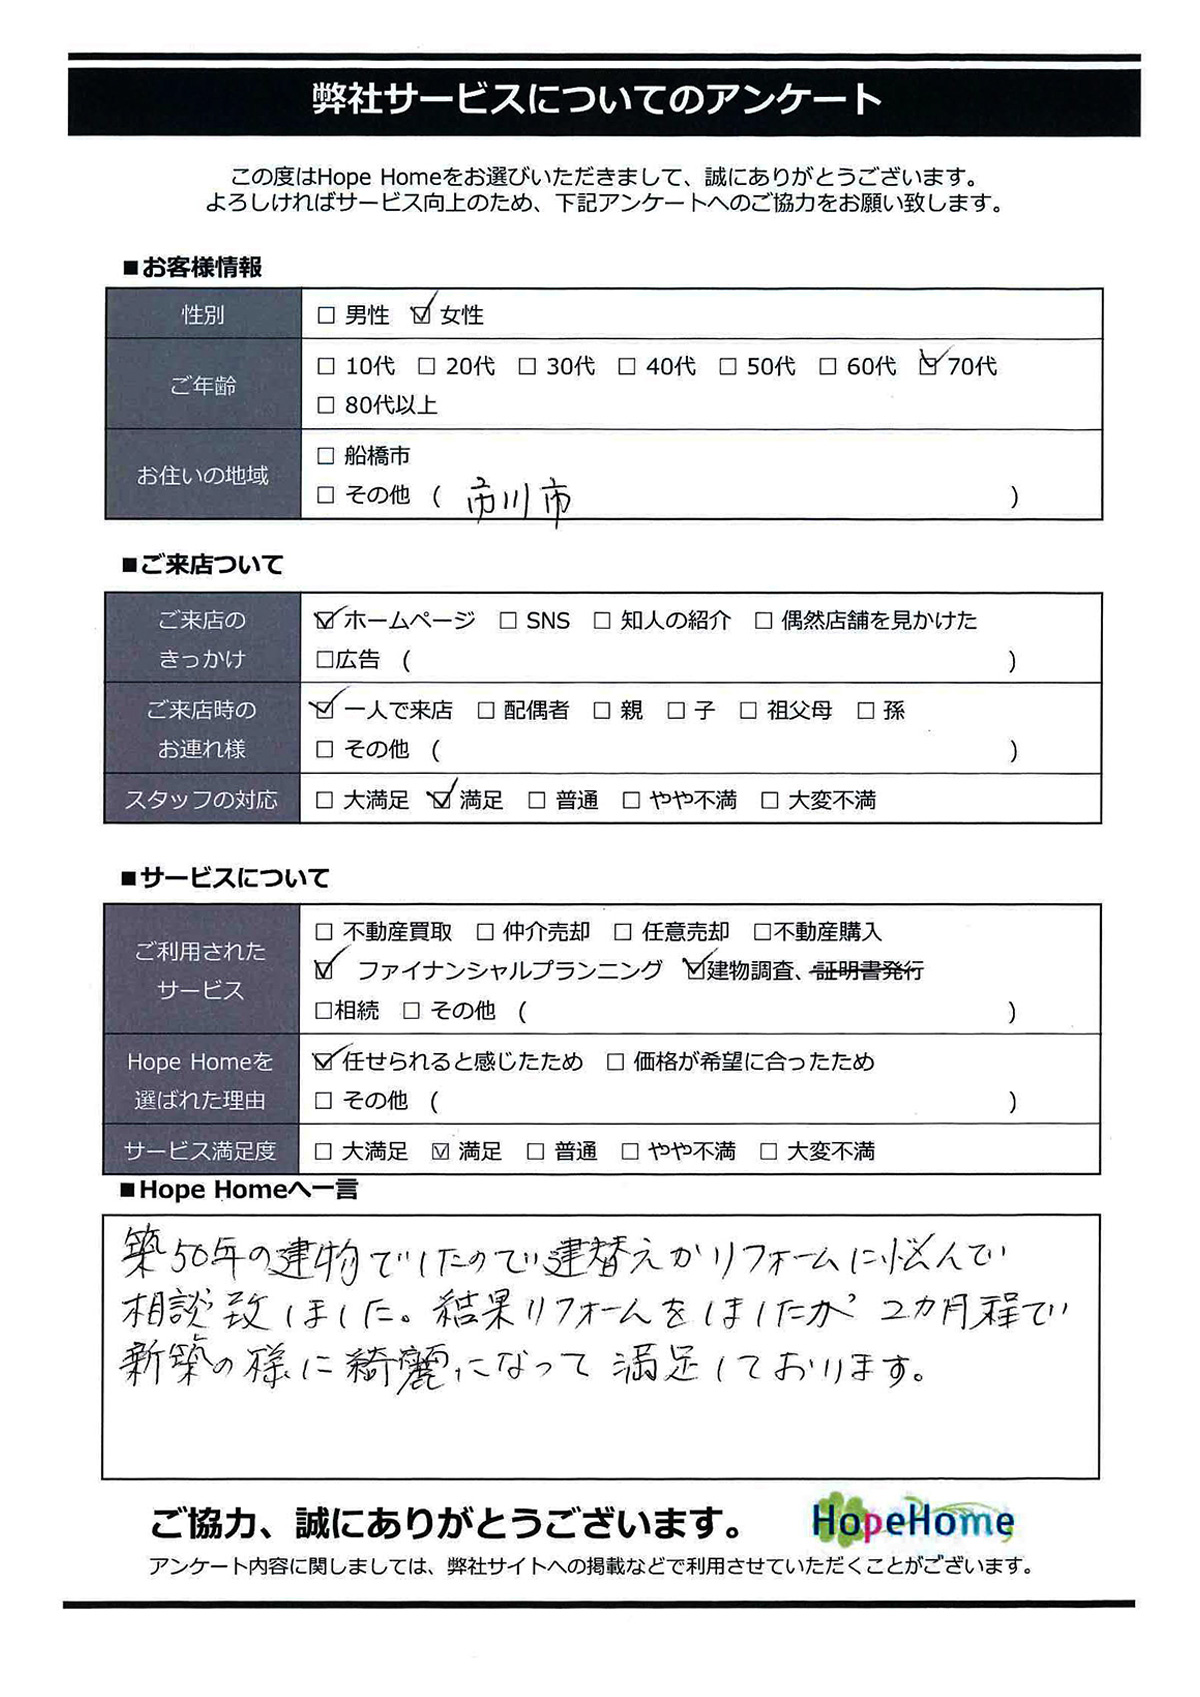 弊社サービスについてのアンケート
この度はHope Homeをお選びいただきまして、誠にありがとうございます。
よろしければサービス向上のため、下記アンケートへのご協力をお願い致します。
■お客様情報
性別 □ 男性 ☑ 女性
ご年齢 □ 10代 □ 20代 □ 30代 □ 40代 □ 50代 □ 60代 ☑ 70代
□ 80代以上
お住いの地域 □ 船橋市
□ その他 ( 市川市 )
■ご来店ついて
ご来店の
きっかけ
☑ ホームページ □ SNS □ 知人の紹介 □ 偶然店舗を見かけた
□広告 ( )
ご来店時の
お連れ様
☑ 一人で来店 □ 配偶者 □ 親 □ 子 □ 祖父母 □ 孫
□ その他 ( )
スタッフの対応 □ 大満足 ☑ 満足 □ 普通 □ やや不満 □ 大変不満
■サービスについて
ご利用された
サービス
□ 不動産買取 □ 仲介売却 □ 任意売却 □不動産購入
☑ ファイナンシャルプランニング ☑建物調査、証明書発行
□相続 □ その他 ( )
Hope Homeを
選ばれた理由
☑ 任せられると感じたため □ 価格が希望に合ったため
□ その他 ( )
サービス満足度 □ 大満足 ☑ 満足 □ 普通 □ やや不満 □ 大変不満
■Hope Homeへ一言
築50年の建物でしたので建替えかリフォームに悩んで
相談致しました。結果リフォームをしましたが2カ月程で
新築の様に綺麗になって満足しております。
ご協力、誠にありがとうございます。
HopeHome
アンケート内容に関しましては、弊社サイトへの掲載などで利用させていただくことがございます。